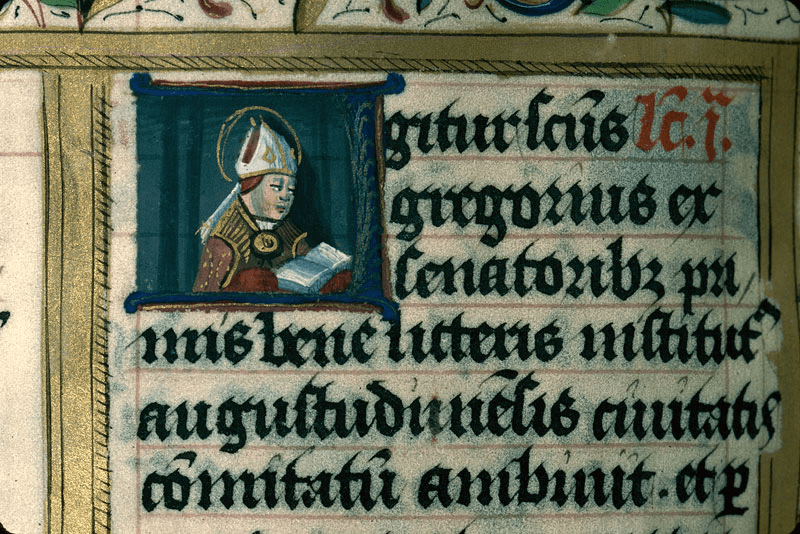 Igitur sc̄us lc̄. j̄.
gregorius ex
senatoribꝫ pri/
mis bene licteris institut᷒
augustudun̄ēsis ciuitatis
cōmitatū ambiuit. et ꝑ